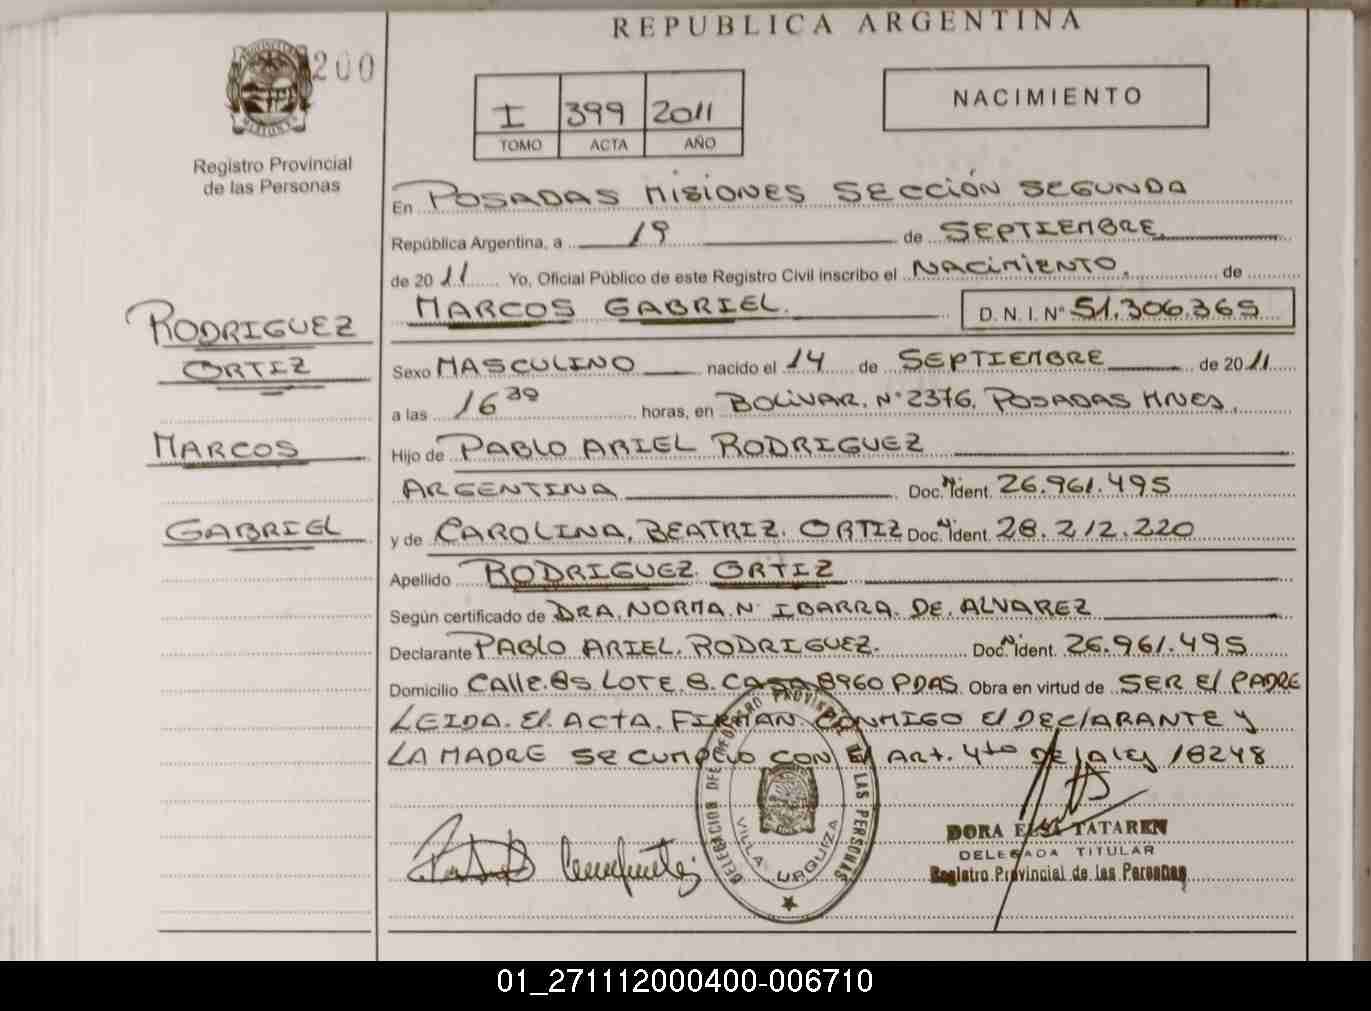 REPUBLICA ARGENTINA
200
I 399 2011
TOMO ACTA AÑO
NACIMIENTO
Registro Provincial
de las Personas
En POSADAS MISIONES SECCIÓN SEGUNDA
República Argentina, a 19 de SEPTIEMBRE.
de 2011 Yo, Oficial Público de este Registro Civil inscribo el NACIMIENTO. de
MARCOS GABRIEL. D. N. I. Nº 51.306.365
RODRIGUEZ
ORTIZ
MARCOS
GABRIEL
Sexo MASCULINO nacido el 14 de SEPTIEMBRE de 2011
a las 16 30 horas, en BOLIVAR. Nº 2376. POSADAS MNES.
Hijo de PABLO ARIEL RODRIGUEZ
ARGENTINA Doc. Ident. 26.961.495
y de CAROLINA. BEATRIZ. ORTIZ Doc. Ident. 28.212.220
Apellido RODRIGUEZ ORTIZ
Según certificado de DRA. NORMA. N. IBARRA. DE. ALVAREZ
Declarante PABLO ARIEL. RODRIGUEZ. Doc. Ident. 26.961.495
Domicilio CALLE. 85. LOTE. 8. CASA 8960 PDAS. Obra en virtud de SER El PADRE
LEIDA. El. ACTA. FIRMAN. CONMIGO El DEClARANTE y
LA MADRE SE CUMPLIO CON El ART. 4to DE lA lEy 18248
DELEGACION DEL REGISTRO PROVINCIAL DE LAS PERSONAS
VILLA URQUIZA
DORA ELSA TATAREN
DELEGADA TITULAR
Registro Provincial de las Personas
01_271112000400-006710